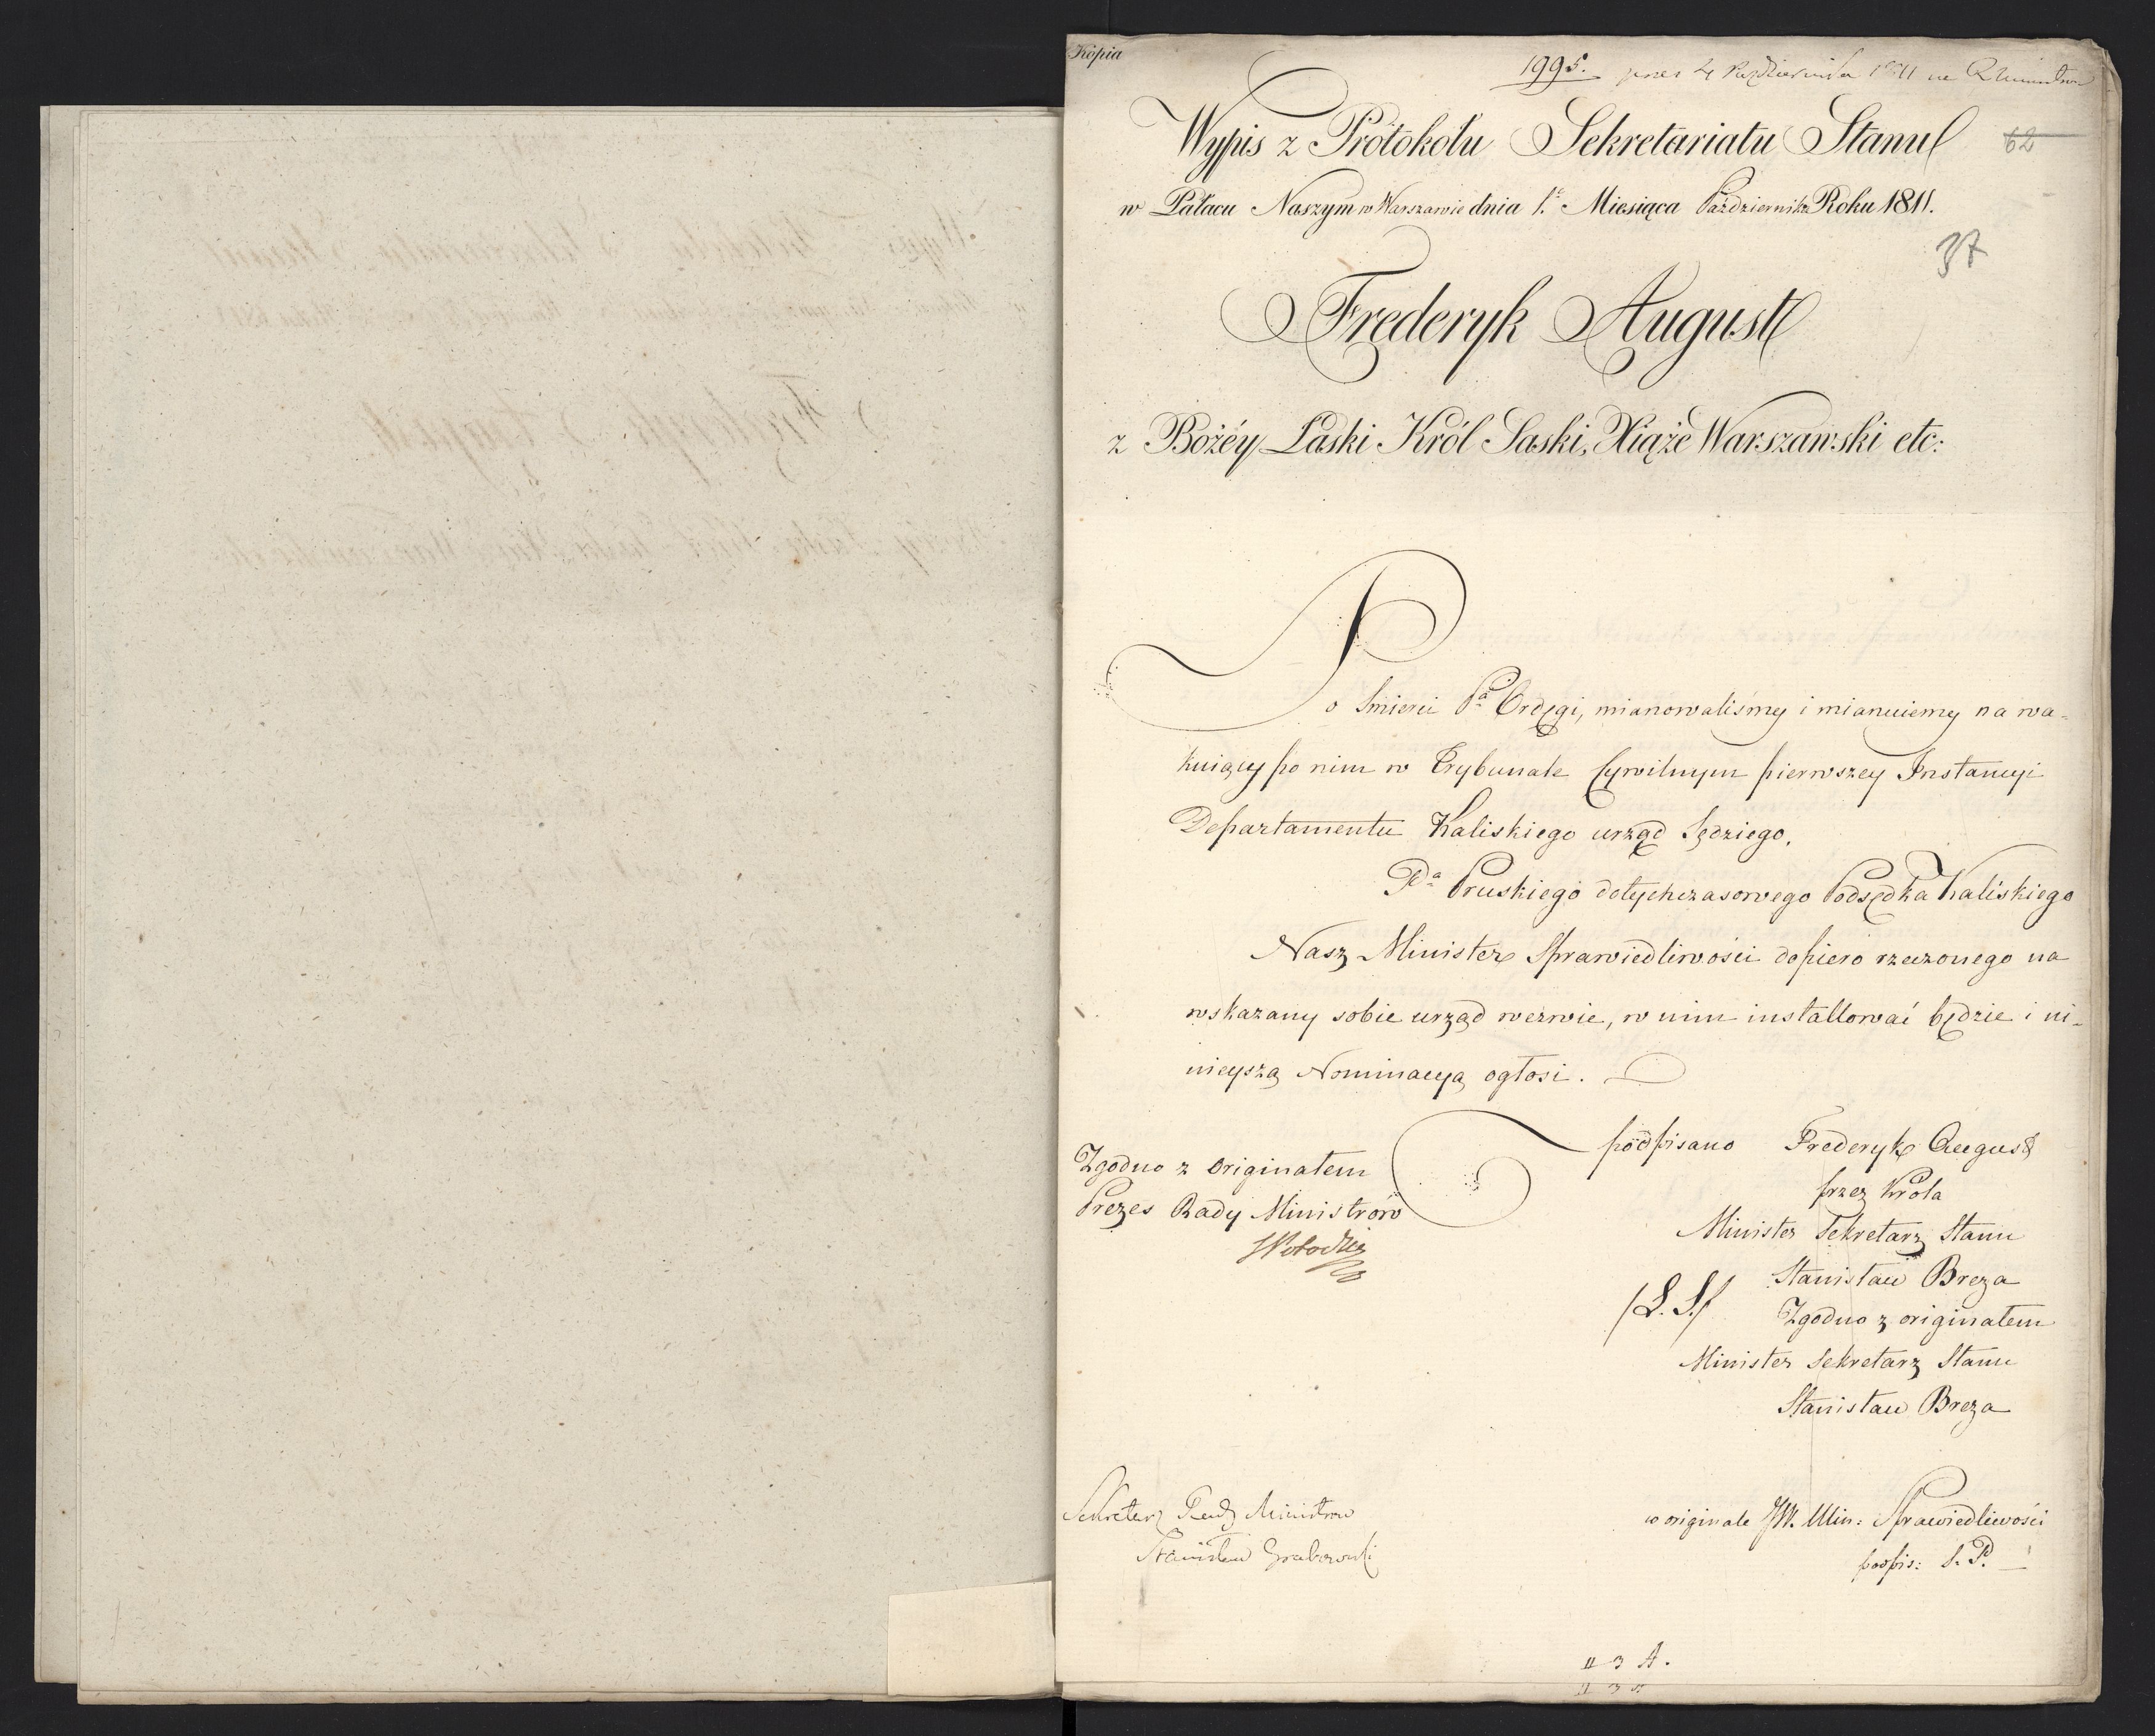 Kopia
1995. 4 Października 1811
Wypis z Protokołu Sekretariatu Stanu
62
w Pałacu Naszym w Warszawie dnia 1. Miesiąca Październik Roku 1811.
37
Frederyk August
z Bożéy Łaski Król Saski, Xiąże Warszawski etc:
Po Śmierci Pa Ordęgi, mianowaliśmy i mianuiemy na wa=
kuiący po nim w Trybunale Cywilnym pierwszey Instancyi
Departamentu Kaliskiego urząd Sędziego.
Pa Pruskiego dotychczasowego Podsędka Kaliskiego
Nasz Minister Sprawiedliwości dopiero rzeczonego na
wskazany sobie urząd wezwie, w nim installować będzie i ni-
nieyszą Nominacyą ogłosi.
podpisano Frederyk August
przez Króla
Minister Sekretarz Stanu
Stanisław Breza
/L. S./ Zgodno z originałem
Minister Sekretarz Stanu
Stanisław Breza
Zgodno z Originałem
Prezes Rady Ministrów
Sekretarz Rady Ministrów
Stanisław Grabowski
w originale JW. Min: Sprawiedliwości
podpis: F. P.
II 3 A.